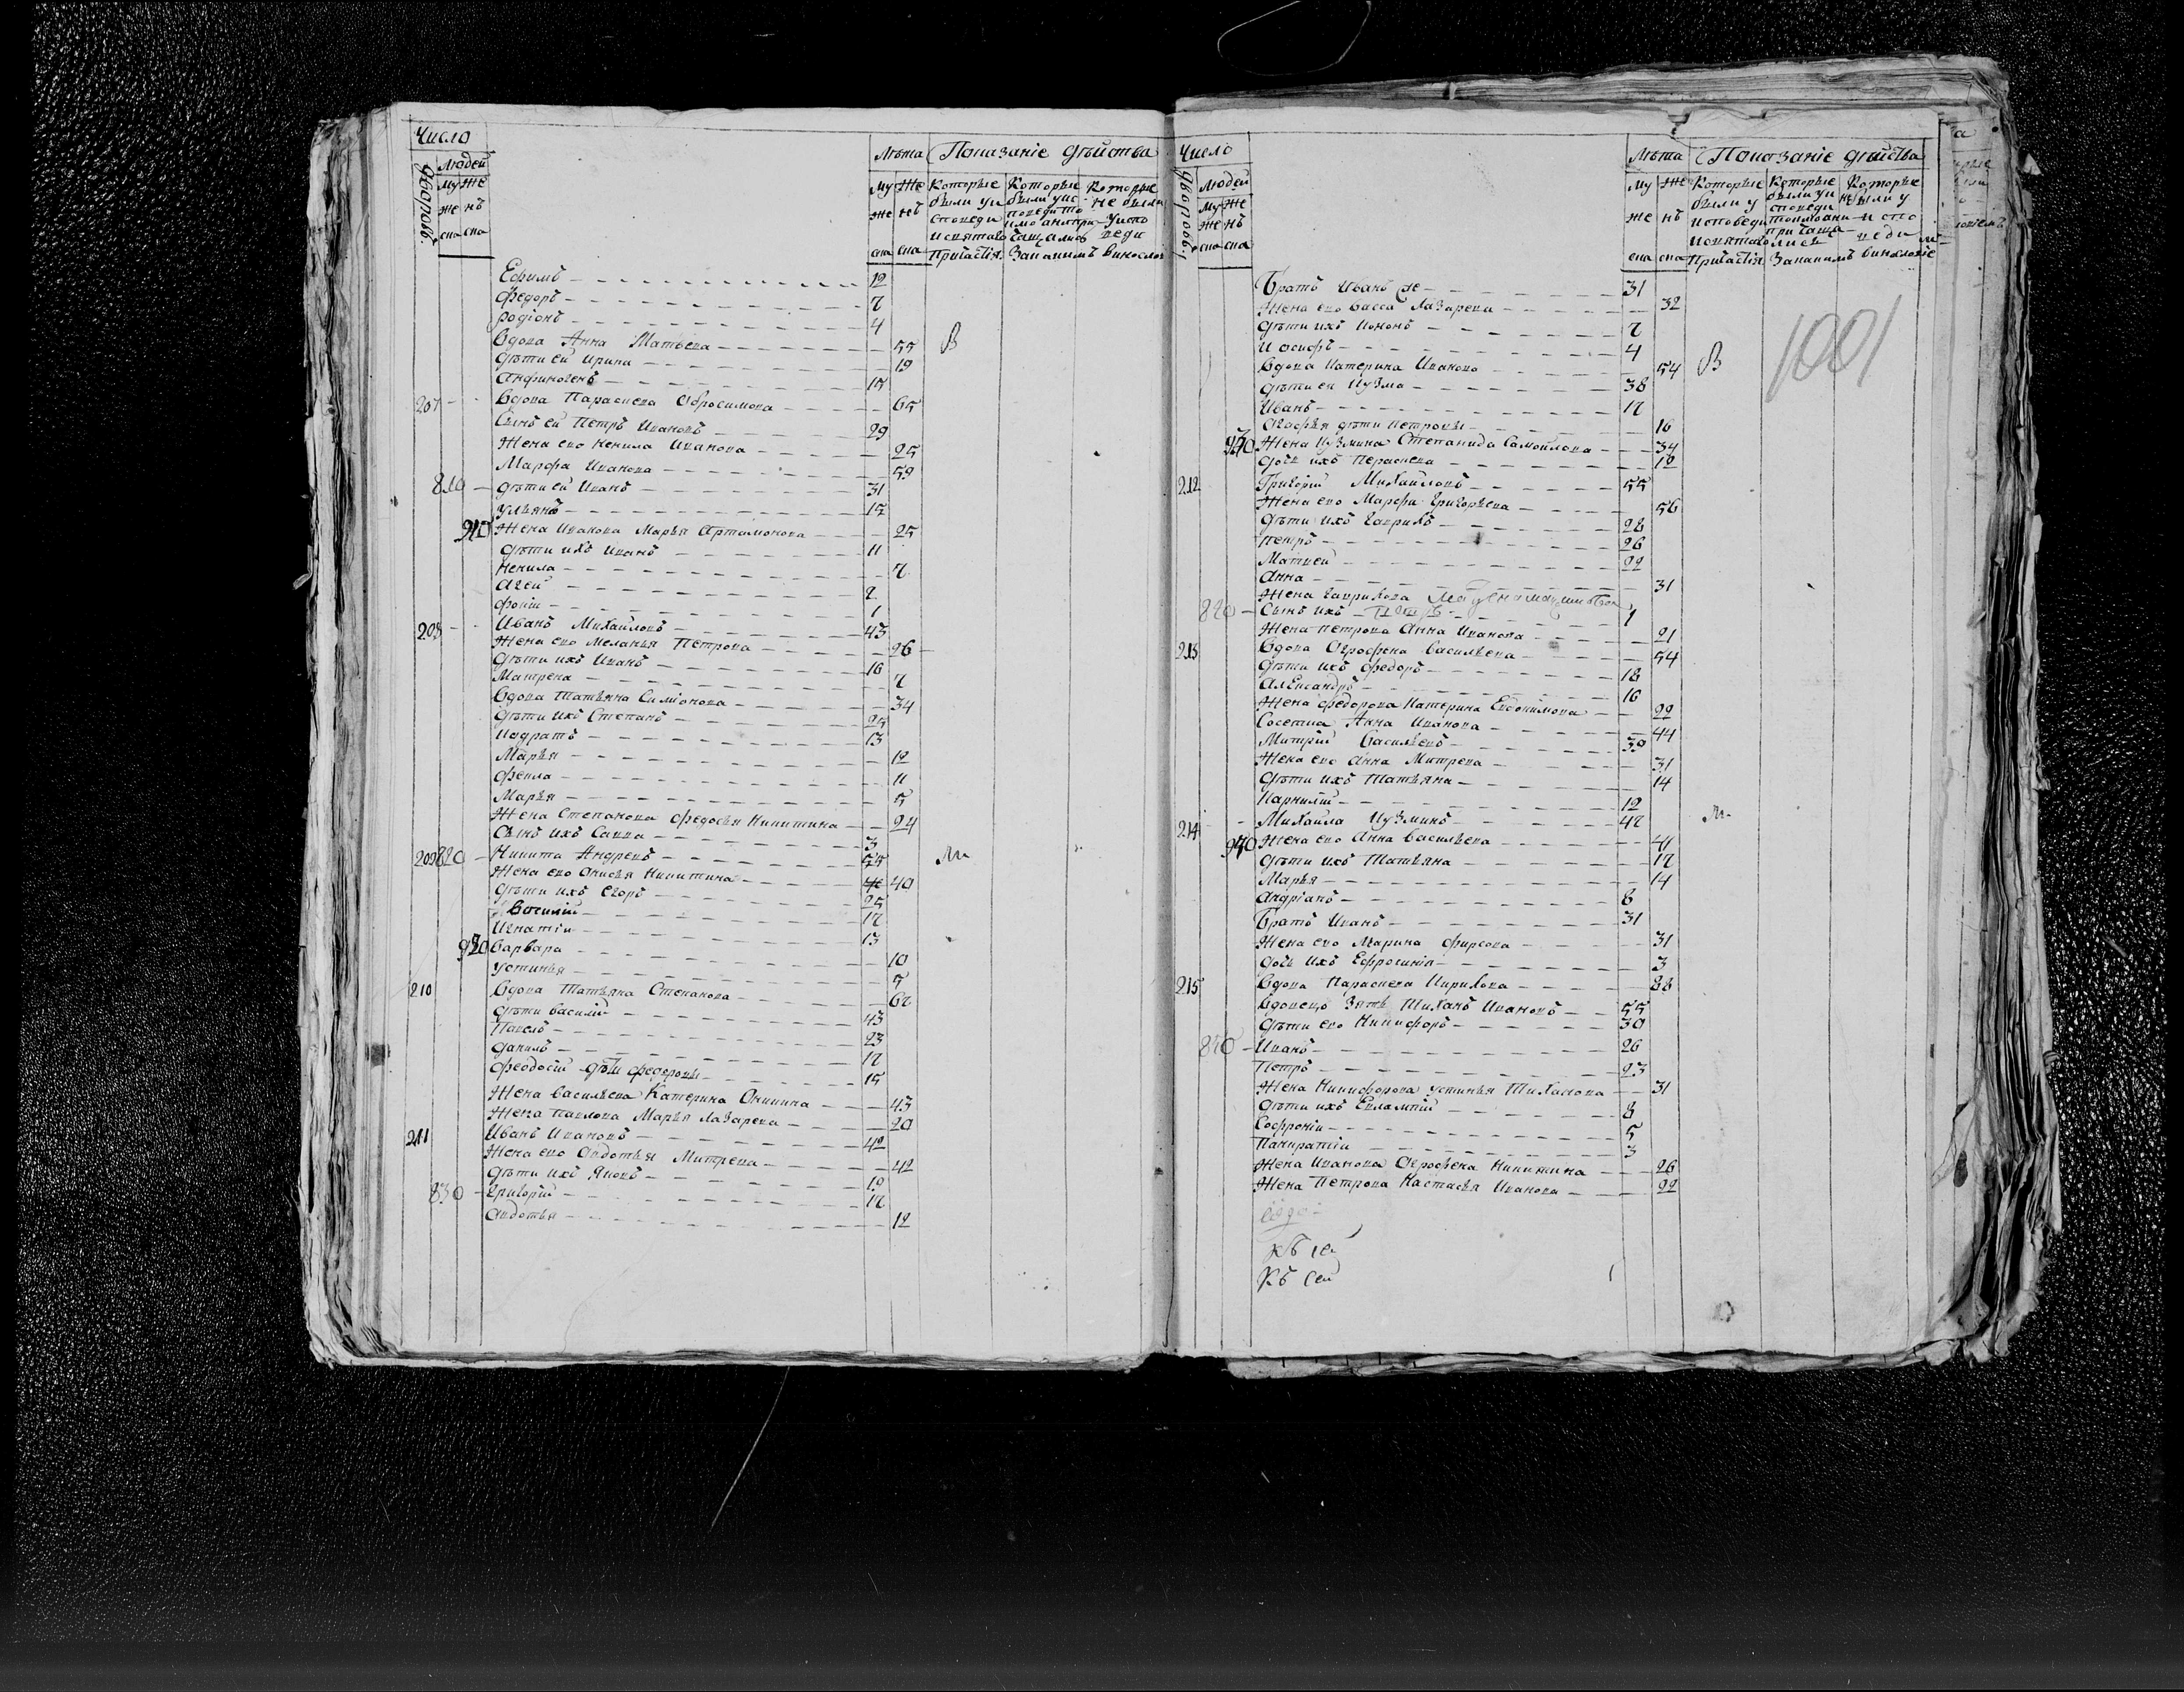 Число
Людей
дворовъ
Му Же
же нъ
ска ска
Лѣта Показаніе дѣйства
Му Же Которые Которые Которые
же нъ были у и были у ис не были
ска ска
Причастія
Ефимъ 12
Федоръ 7
Родіонъ 4
Вдова Анна Матвева 55
дѣти ей Ирина 19
Анфиногенъ 15
207 Вдова Параскева Обросимова 65
Сынъ ей Петръ Ивановъ 29
Жена ево Ненила Иванова 25
Марфа Иванова 59
810 дѣти ей Иванъ 31
Ульянъ 15
Жена Иванова Марья Артамонова 25
дѣти ихъ Иванъ 11
Ненила 7
Агей 2
Фокiи 1
208 Иванъ Михайловъ 43
Жена ево Меланья Петрова 26
дѣти ихъ Иванъ 16
Матрена 7
Вдова Татьяна Симіонова 34
дѣти ихъ Степанъ 25
Кодратъ 13
Марья 12
Фекла 11
Марья 5
Жена Степанова Федосья Никитина 24
Сынъ ихъ Савва 3
209 820 Никита Андревъ 55
Жена ево Анисья Никитина 40
дѣти ихъ Егоръ 25
Василій 17
Игнатiи 13
920 Варвара 10
Устинья 5
210 Вдова Татьяна Степанова 67
дѣти Василiй 43
Павелъ 23
Данилъ 17
Феодосiй дѣти Федоровы 15
Жена Васильева Катерина Аникина 43
Жена Павлова Марья Лазарева 20
211 Иванъ Ивановъ 42
Жена ево Авдотья Митрева 42
дѣти ихъ Яковъ 19
830 Григорiй 17
Авдотья 12
Число
Людей
дворовъ
Му Же
же нъ
ска ска
Лѣта Показаніе дѣйства
Му Же Которые Которые Которые
же нъ
ска ска
1001
Братъ Иванъ же 31
Жена ево Васса Лазарева 32
дѣти ихъ Кононъ 7
Иосифъ 4
Вдова Катерина Иванова 54
дѣти ея Кузма 38
Иванъ 17
Агафья дѣти Петровы 16
Жена Кузмина Степанида Самойлова 34
дочь ихъ Пераскева 12
212 Григорiй Михайловъ 55
Жена ево Марфа Григорьева 56
дѣти ихъ Гаврилъ 28
Петръ 26
Матвей 22
Анна 31
Жена Гаврилова
Сынъ ихъ Петръ 1
Жена Петрова Анна Иванова 21
213 Вдова Агрофена Васильева 54
дѣти ихъ Федоръ 18
Александръ 16
Жена Федорова Катерина Евдокимова 22
Сосетка Анна Иванова 44
Митрiй Васильевъ 39
Жена ево Анна Митрева 31
дѣти ихъ Татьяна 14
Карнилiй 12
214 Михайла Кузминъ 47
940 Жена ево Анна Васильева 41
дѣти ихъ Татьяна 17
Марья 14
Андріанъ 8
Братъ Иванъ 31
Жена ево Марина Фирсова 31
дочь ихъ Ефросинiя 3
215 Вдова Параскева Кирилова 88
Вдовецъ Зять Тиханъ Ивановъ 55
дѣти ево Никифоръ 30
Иванъ 26
Петръ 23
Жена Никифорова Устинья Тиханова 31
дѣти ихъ Евлампiй 8
Софронiи 5
Панкратiи 3
Жена Иванова Агрофена Никитина 26
Жена Петрова Настасья Иванова 22
Къ сей